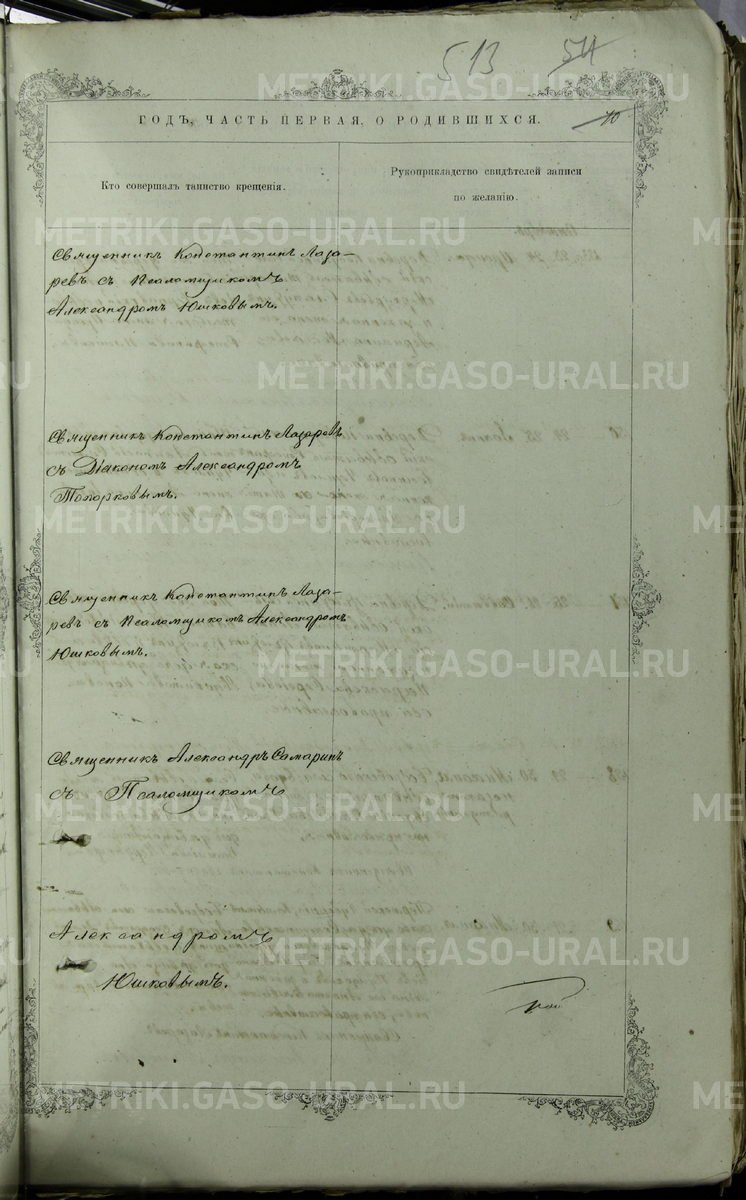 513 54
ГОДЪ, ЧАСТЬ ПЕРВАЯ, О РОДИВШИХСЯ.
10
Кто совершалъ таинство крещенія.
Рукоприкладство свидѣтелей записи
по желанію.
Священникъ Константинъ Лаза-
ревъ съ Псаломщикомъ
Александромъ Юшковымъ.
Священникъ Константинъ Лазаревъ
съ Діакономъ Александромъ
Топорковымъ.
Священникъ Константинъ Лаза-
ревъ съ Псаломщикомъ Александромъ
Юшковымъ.
Священникъ Александръ Самаринъ
съ Псаломщикомъ
Александромъ
Юшковымъ.
METRIKI.GASO-URAL.RU